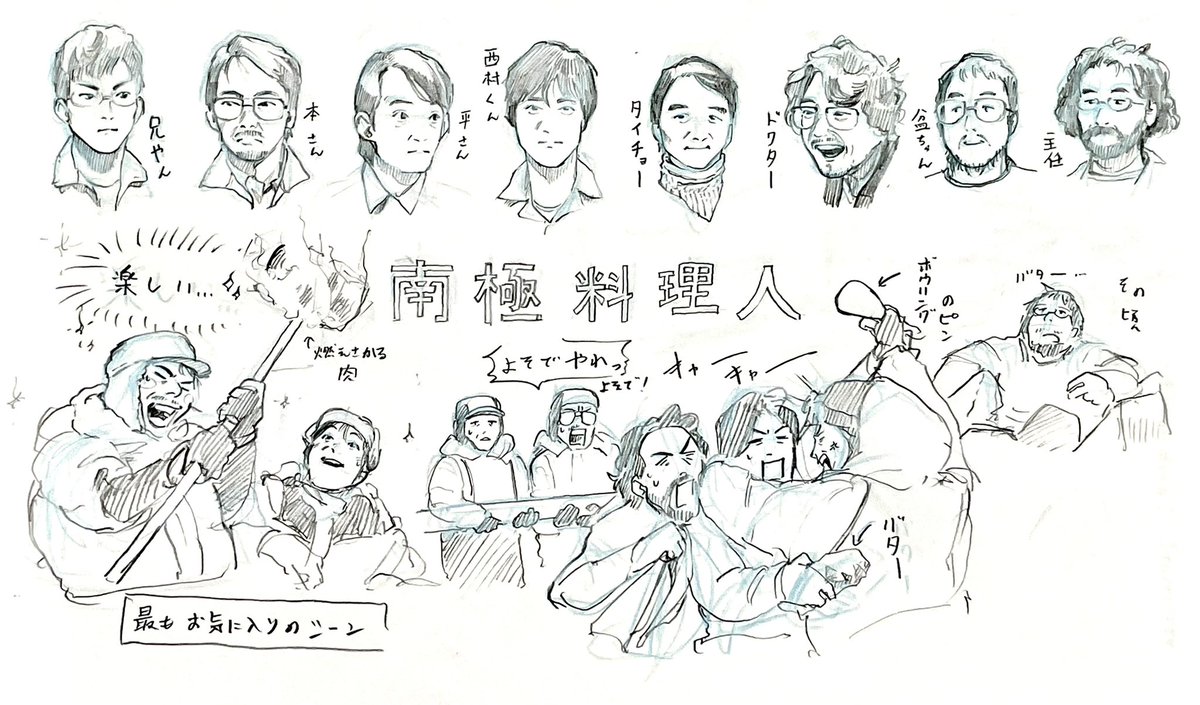 兄やん
本さん
平さん
西村くん
タイチョー
ドクター
盆ちゃん
主任
楽しい…
南極料理人
↑燃えさかる
肉
よそでやれっ
よそで!
キャーキャー
ボウリング
のピン
バター…
その頃
バター
最もお気に入りのシーン